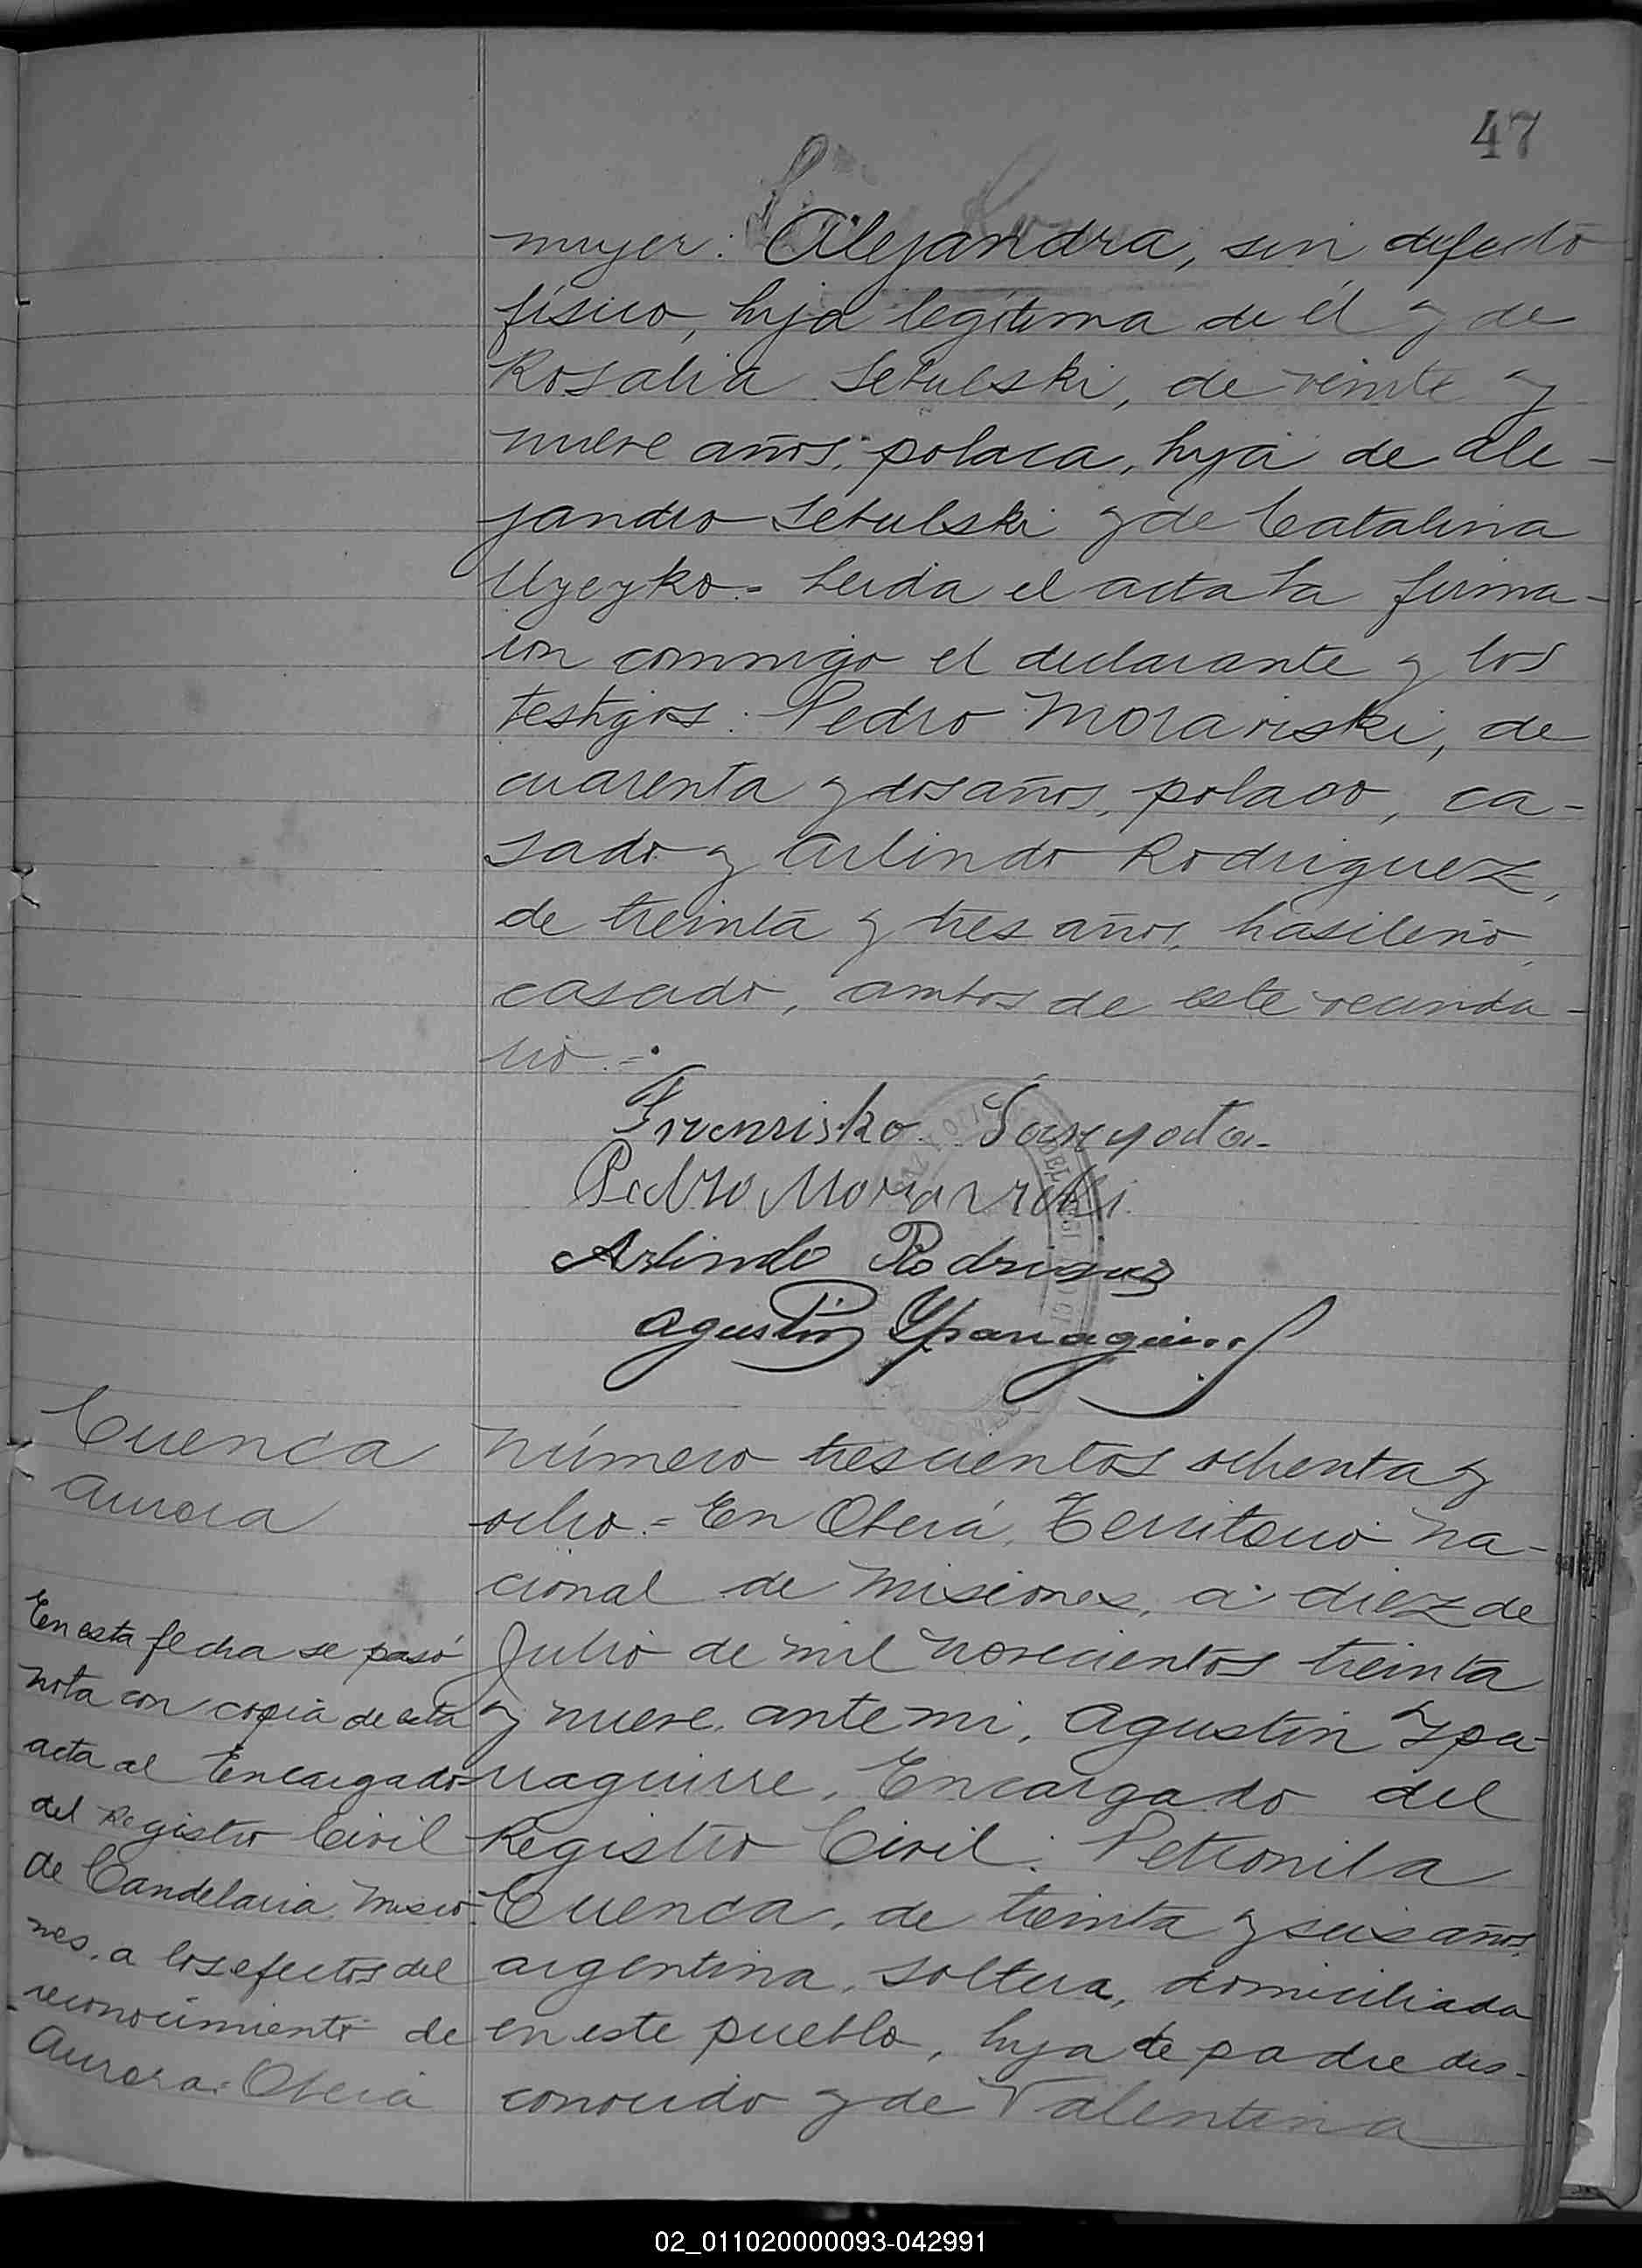 47
mujer: Alejandra, sin defecto
físico, hija legítima de él y de
Rosalia Setulski, de veinte y
nueve años, polaca, hija de Ale-
jandro Setulski y de Catalina
Uyeyko.= Leida el acta la firma-
ron conmigo el declarante y los
testigos: Pedro Moraviski, de
cuarenta y dos años, polaco, ca-
sado y Arlindo Rodriguez,
de treinta y tres años, brasileño,
casado, ambos de este vecinda-
rio.=
Franzisko
Pedro Moravski
Arlindo Rodriguez
Agustin Yparraguirre
Cuenca
Aurora
En esta fecha se pasó
nota con copia de esta
acta al Encargado
del Registro Civil
de Candelaria, Misio-
nes, a los efectos del
reconocimiento de
Aurora.= Oberá
Número trescientos ochenta y
ocho.= En Oberá, Territorio Na-
cional de Misiones, a diez de
Julio de mil novecientos treinta
y nueve, ante mi, Agustin Ypa-
rraguirre, Encargado del
Registro Civil: Petronila
Cuenca, de treinta y seis años,
argentina, soltera, domiciliada
en este pueblo, hija de padre des-
conocido y de Valentina
02_011020000093-042991